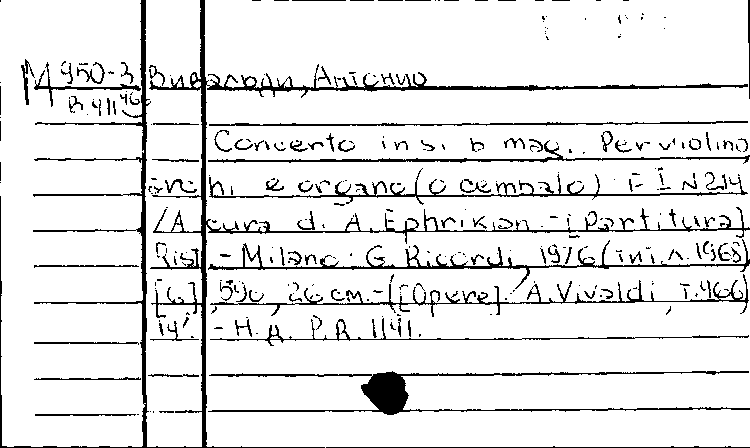 М 950-3 Вивальди, Антонио
В.411 466
Concerto in si b mag. Per violino,
archi e organo (o cembalo) F I N 214
/A cura di A. Ephrikian. - [Partitura]
Rist. - Milano: G. Ricordi, 1976 (тит.л. 1968)
[6], 59c, 26 cm. - ([Opere] / A. Vivaldi, т. 466)
14'. - Н.д. P.R. 1141.